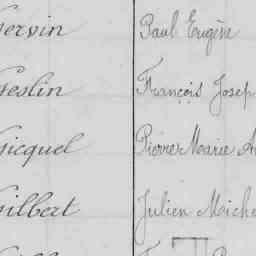 ervin Paul Eugène
eslin François Josep
icquel Pierre Marie A
ilbert Julien Miche